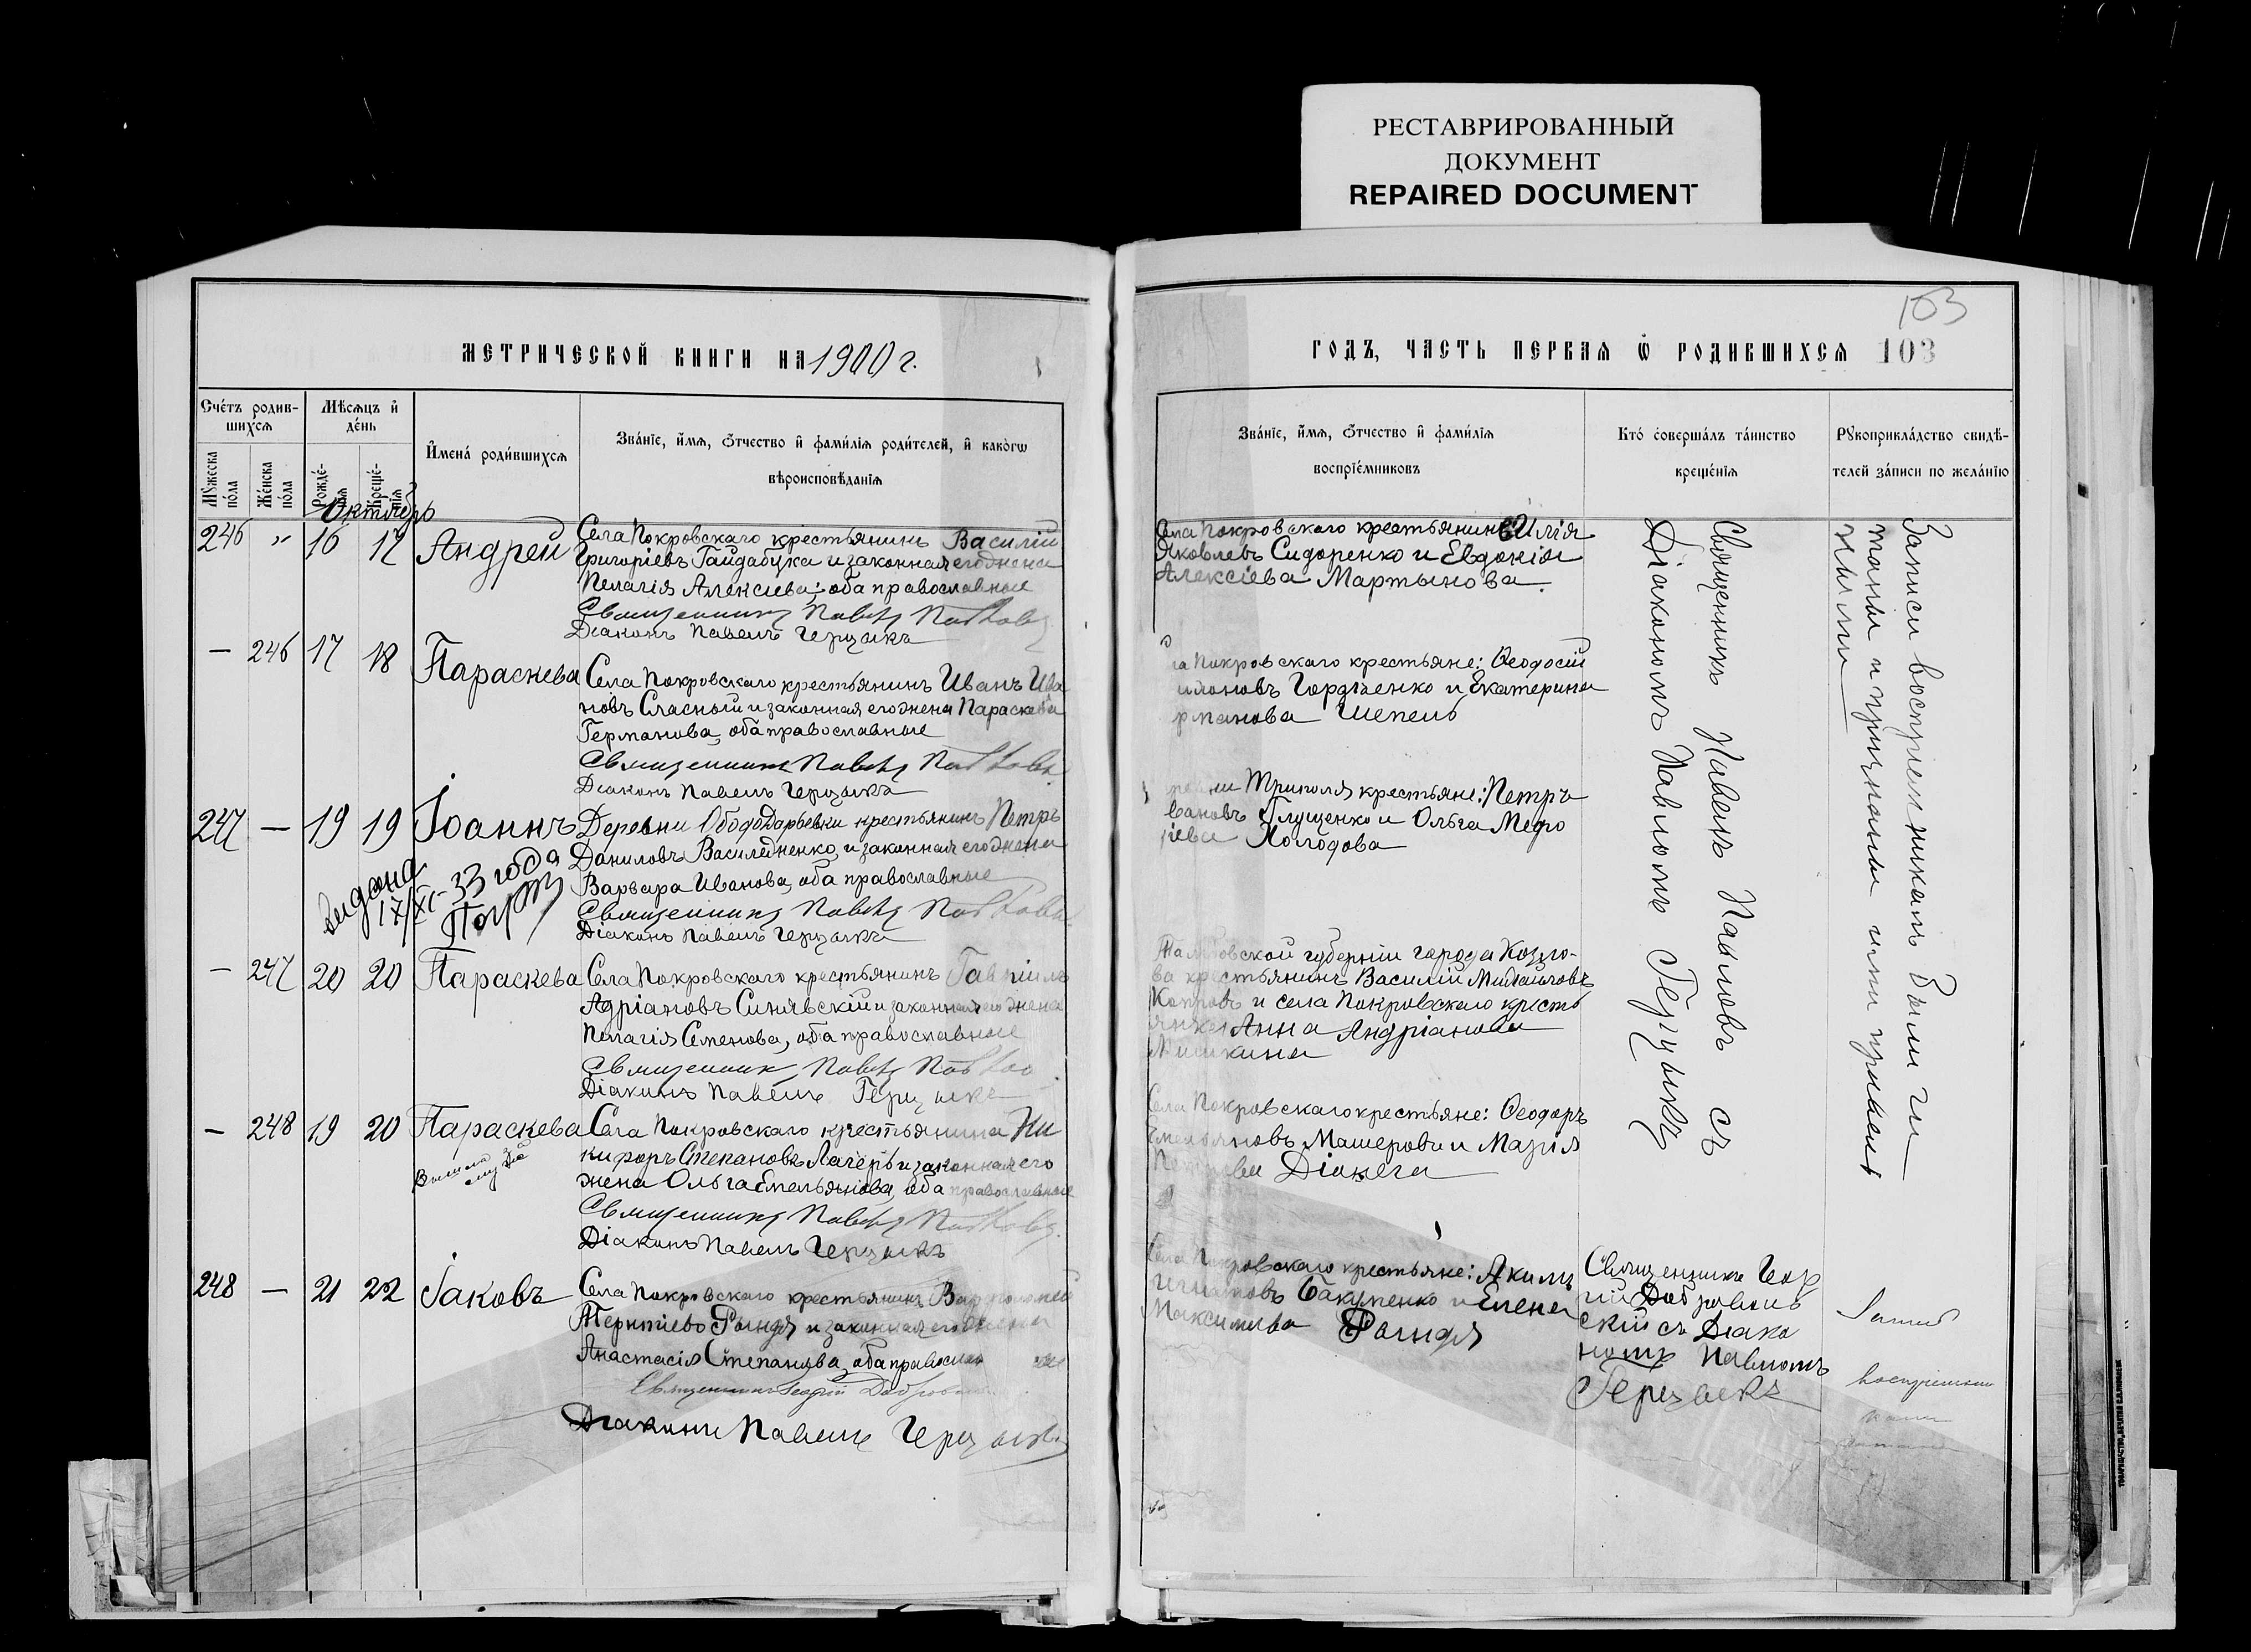 РЕСТАВРИРОВАННЫЙ
ДОКУМЕНТ
REPAIRED DOCUMENT
103
МЕТРИЧЕСКОЙ КНИГИ НА 1900 г.
ГОДЪ, ЧАСТЬ ПЕРВАЯ Ѿ РОДИВШИХСЯ 103
Счетъ родив-
шихся
Мѣсяцъ и
день
Мужеска
пола
Женска
пола
Рожде-
нія
Креще-
нія
Имена родившихся
Званіе, имя, отчество и фамилія родителей, и какогѡ
вѣроисповѣданія
Званіе, имя, отчество и фамилія
воспріемниковъ
Кто совершалъ таинство
крещенія
Рукоприкладство свидѣ-
телей записи по желанію
Октябрь
246 " 16 17 Андрей
Села Покровскаго крестьянинъ Василій
Григоріевъ Гайдабука и законная его жена
Пелагія Алексіева; оба православные
Священникъ Павелъ Павловъ
Діаконъ Павелъ Герцыкъ
Села Покровскаго крестьянинъ Илія
Яковлевъ Сидоренко и Евдокія
Алексіева Мартынова.
— 246 17 18 Параскева
Села Покровскаго крестьянинъ Иванъ Ива
новъ Спасный и законная его жена Параскева
Германова, оба православные
Священникъ Павелъ Павловъ
Діаконъ Павелъ Герцыкъ
Покровскаго крестьяне: Ѳеодосій
Гордіенко и Екатерина
Шепель
247 — 19 19 Іоаннъ
Деревни ОбодоДарьевки крестьянинъ Петръ
Даниловъ Василиненко, и законная его жена
Варвара Иванова, оба православные
Священникъ Павелъ Павловъ
Діаконъ Павелъ Герцыкъ
Видана
17/XI-33 года
Триполя крестьяне: Петръ
Глущенко и Ольга Меѳо
Холодова
— 247 20 20 Параскева
Села Покровскаго крестьянинъ Гавріилъ
Адріановъ Синявскій и законная его жена
Пелагія Семенова, оба православные
Священникъ Павелъ Павловъ
Діаконъ Павелъ Герцыкъ
Тамбовской губерніи города Козло-
ва крестьянинъ Василій Михайловъ
и села Покровскаго кресть
янка Анна Андріанова
Мишкина
— 248 19 20 Параскева
Села Покровскаго крестьянина Ни
кифоръ Степановъ Лагеръ и законная его
жена Ольга Емельянова, оба православные
Священникъ Павелъ Павловъ
Діаконъ Павелъ Герцыкъ
Села Покровскаго крестьяне: Ѳеодоръ
Емельяновъ и Марія
Діакега
248 — 21 22 Іаковъ
Села Покровскаго крестьянинъ Варѳоломей
Терентіевъ Рындя и законная его жена
Анастасія Степанова, оба православные
Священникъ Георгій
Діаконъ Павелъ Герцыкъ
Села Покровскаго крестьяне: Акимъ
Игнатовъ Бакуменко и Елена
Максимова Рындя
Священникъ Павелъ Павловъ съ
Діакономъ Павломъ Герцыкъ
Священникъ Геор
гій Добровольс
скій съ Діако
номъ Павломъ
Герцыкъ
Записи воспріемникамъ были чи
таны и признаны ими правиль
ными